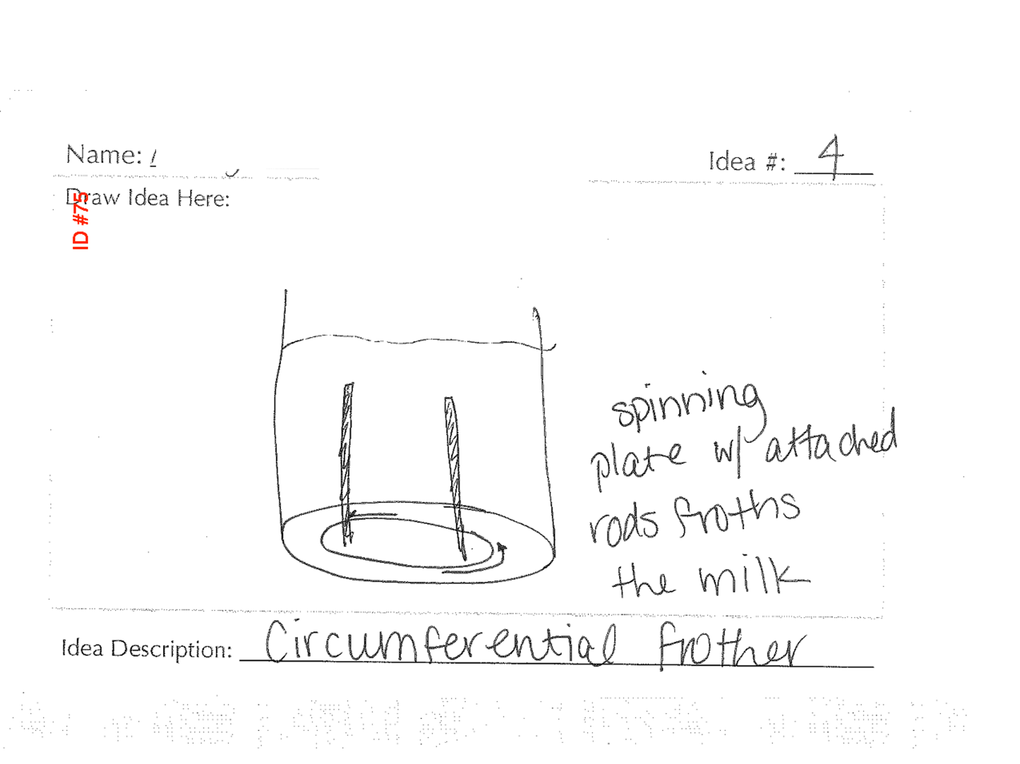 Name:
Idea #: 4
Draw Idea Here:
ID #75
spinning
plate w/ attached
rods froths
the milk
Idea Description: Circumferential frother